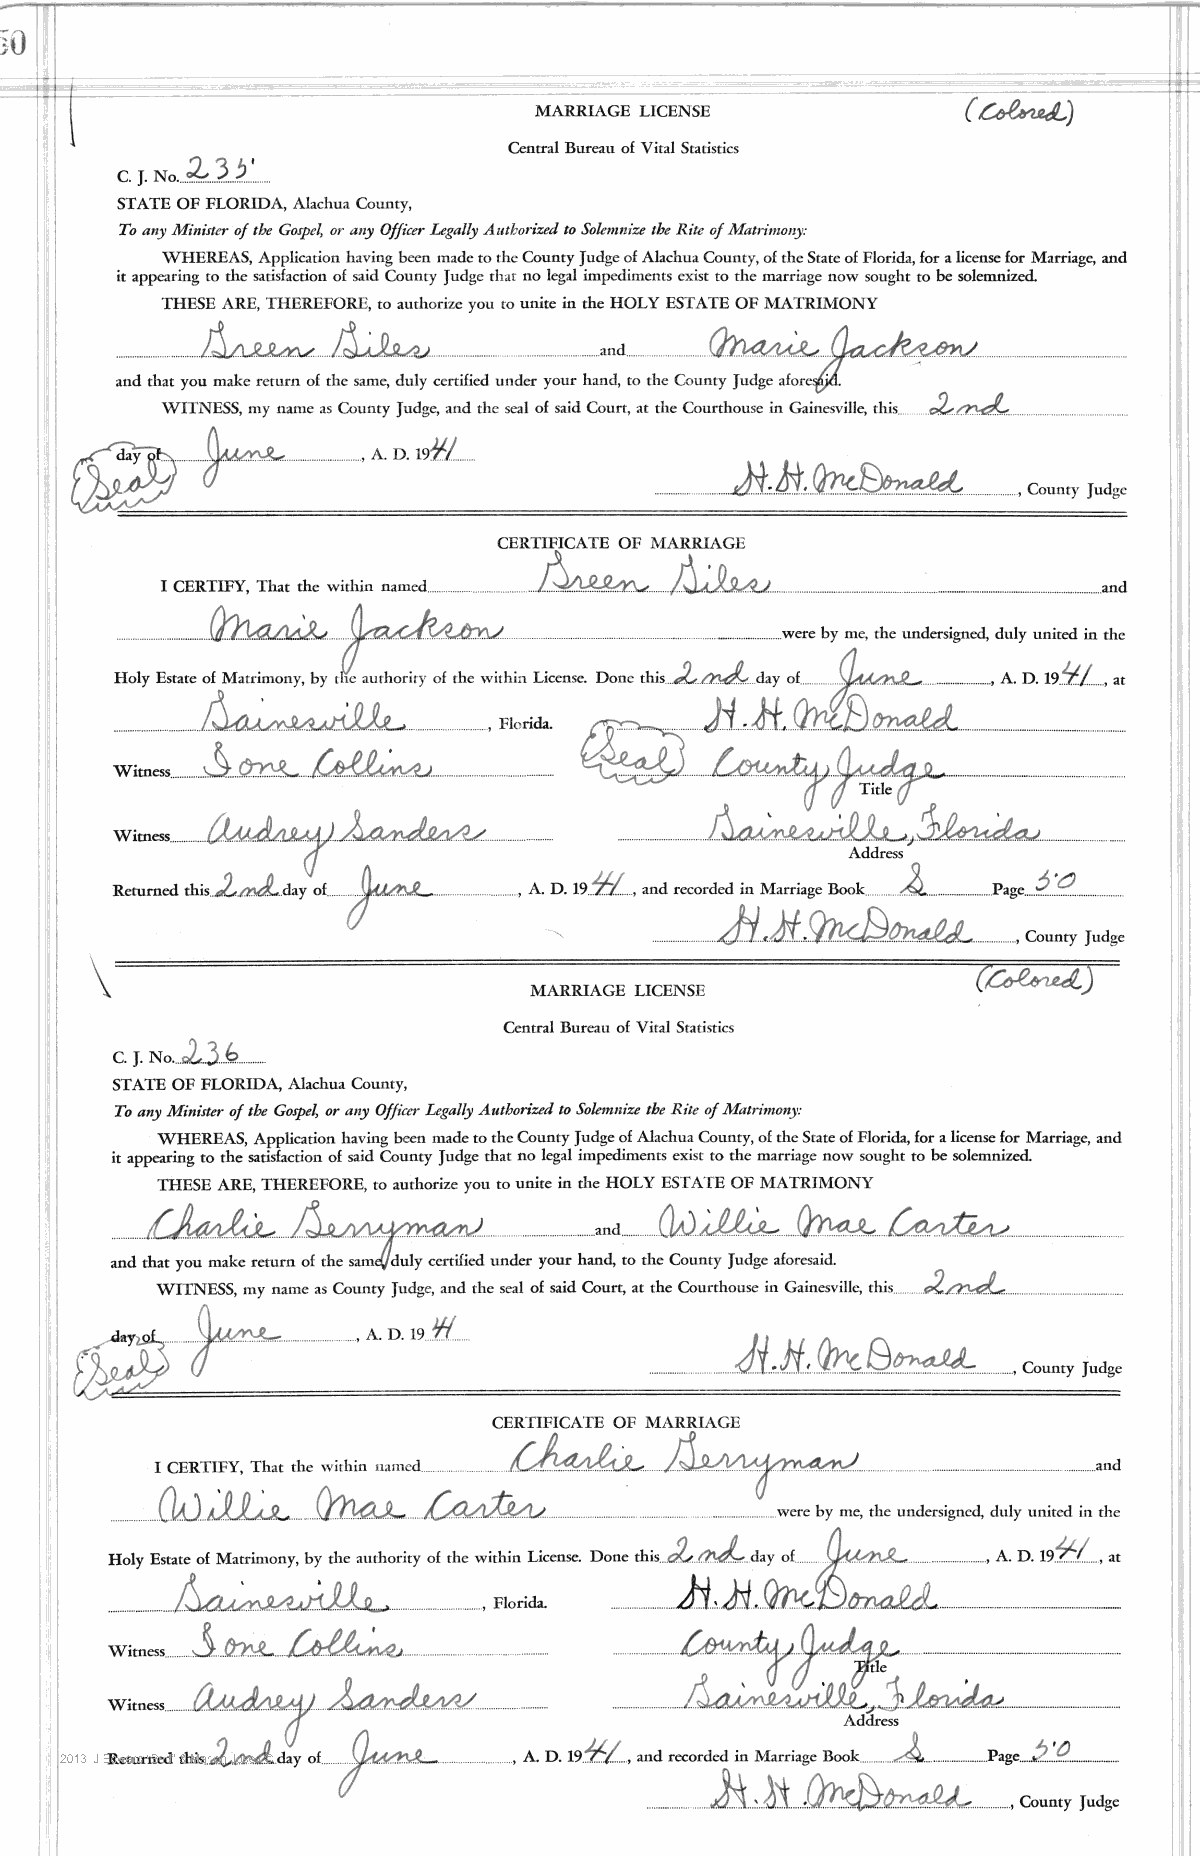 50
MARRIAGE LICENSE (Colored)
Central Bureau of Vital Statistics
C. J. No. 235
STATE OF FLORIDA, Alachua County,
To any Minister of the Gospel, or any Officer Legally Authorized to Solemnize the Rite of Matrimony:
WHEREAS, Application having been made to the County Judge of Alachua County, of the State of Florida, for a license for Marriage, and
it appearing to the satisfaction of said County Judge that no legal impediments exist to the marriage now sought to be solemnized.
THESE ARE, THEREFORE, to authorize you to unite in the HOLY ESTATE OF MATRIMONY
Green Giles and Marie Jackson
and that you make return of the same, duly certified under your hand, to the County Judge aforesaid.
WITNESS, my name as County Judge, and the seal of said Court, at the Courthouse in Gainesville, this 2nd
day of June, A. D. 1941
Seal H. H. McDonald, County Judge
CERTIFICATE OF MARRIAGE
I CERTIFY, That the within named Green Giles and
Marie Jackson were by me, the undersigned, duly united in the
Holy Estate of Matrimony, by the authority of the within License. Done this 2nd day of June, A. D. 1941, at
Gainesville, Florida. H. H. McDonald
Witness Ione Collins Seal County Judge
Title
Witness Audrey Sanders Gainesville, Florida
Address
Returned this 2nd day of June, A. D. 1941, and recorded in Marriage Book S Page 50
H. H. McDonald, County Judge
(Colored)
MARRIAGE LICENSE
Central Bureau of Vital Statistics
C. J. No. 236
STATE OF FLORIDA, Alachua County,
To any Minister of the Gospel, or any Officer Legally Authorized to Solemnize the Rite of Matrimony:
WHEREAS, Application having been made to the County Judge of Alachua County, of the State of Florida, for a license for Marriage, and
it appearing to the satisfaction of said County Judge that no legal impediments exist to the marriage now sought to be solemnized.
THESE ARE, THEREFORE, to authorize you to unite in the HOLY ESTATE OF MATRIMONY
Charlie Gerryman and Willie Mae Carter
and that you make return of the same, duly certified under your hand, to the County Judge aforesaid.
WITNESS, my name as County Judge, and the seal of said Court, at the Courthouse in Gainesville, this 2nd
day of June, A. D. 1941
Seal H. H. McDonald, County Judge
CERTIFICATE OF MARRIAGE
I CERTIFY, That the within named Charlie Gerryman and
Willie Mae Carter were by me, the undersigned, duly united in the
Holy Estate of Matrimony, by the authority of the within License. Done this 2nd day of June, A. D. 1941, at
Gainesville, Florida. H. H. McDonald
Witness Ione Collins County Judge
Title
Witness Audrey Sanders Gainesville, Florida
Address
2013 Returned this 2nd day of June, A. D. 1941, and recorded in Marriage Book S Page 50
H. H. McDonald, County Judge